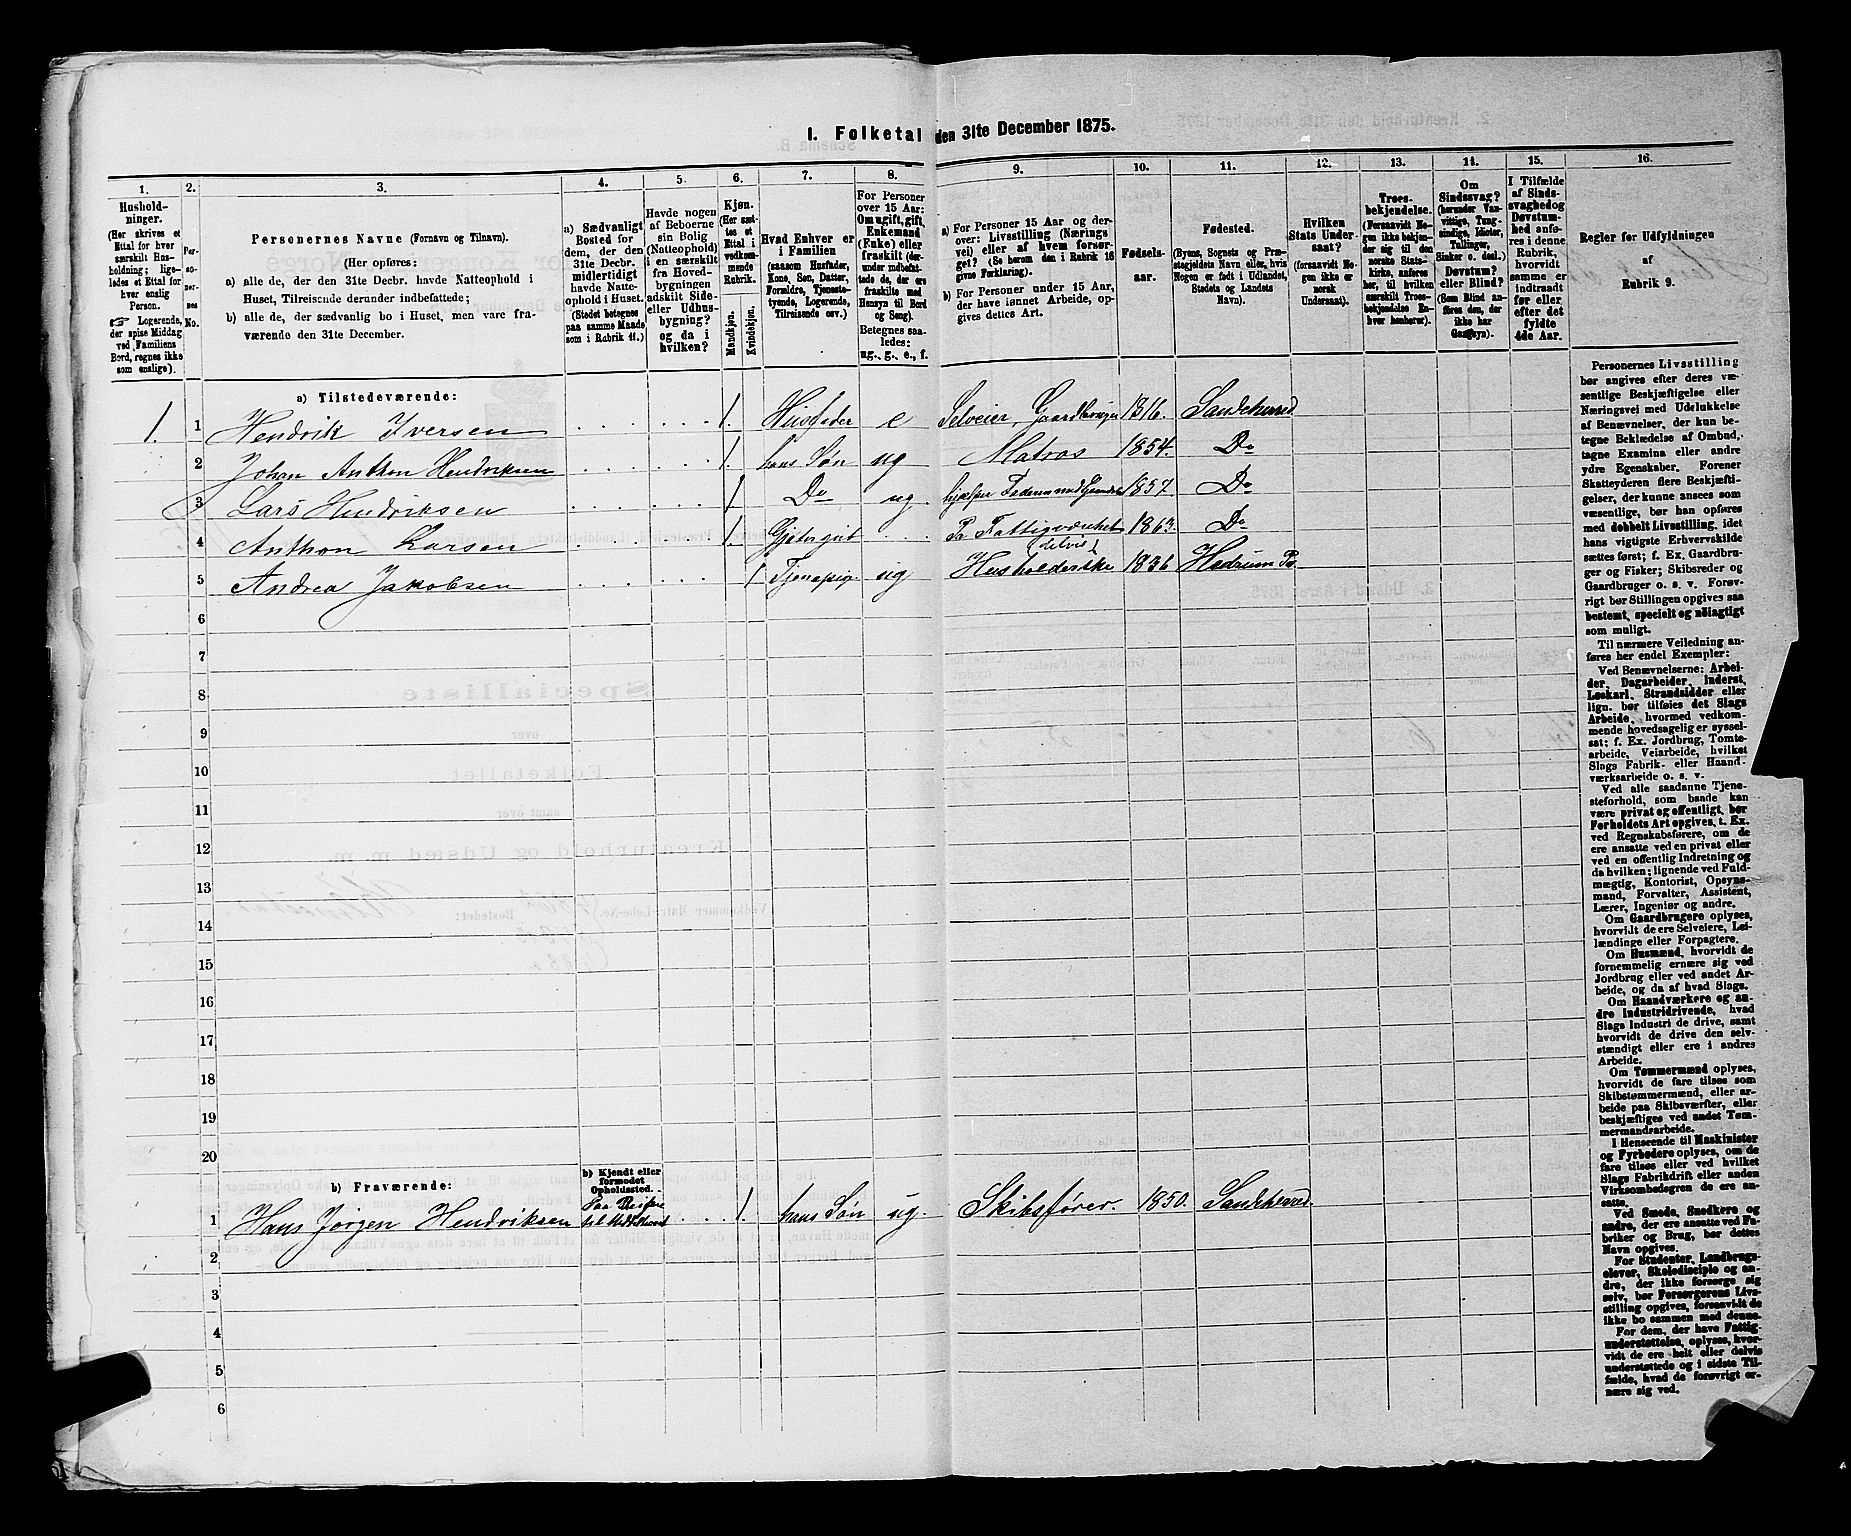 I. Folketal den 31te December 1875.
1. 2. 3. 4. 5. 6. 7. 8. 9. 10. 11. 12. 13. 14. 15. 16.
Husholdninger.
(Her skrives et
Ettal for hver
særskilt Husholdning;
ligeledes et Ettal for
hver enslig
Person.
☞ Logerende,
der spise Middag
ved Familiens
Bord, regnes ikke
som enslige).
Personernes No.
Personernes Navne (Fornavn og Tilnavn).
(Her opføres:
a) alle de, der den 31te Decbr. havde Natteophold i
Huset, Tilreisende derunder indbefattede;
b) alle de, der sædvanlig bo i Huset, men vare fraværende
den 31te December.
a) Sædvanligt
Bosted for
dem, der den
31te Decbr.
midlertidigt
havde Natteophold
i Huset.
(Stedet betegnes
paa samme Maade
som i Rubrik 11.)
Havde nogen
af Beboerne
sin Bolig
(Natteophold)
i en særskilt
fra Hovedbygningen
adskilt Side-
eller Udhusbygning?
og da i
hvilken?
Kjøn.
(Her sættes
et
Ettal i
vedkommende
Rubrik.
Mandkjøn. Kvindekjøn.
Hvad Enhver er
i Familien
(saasom Husfader,
Kone, Søn, Datter,
Forældre, Tjenestetyende,
Logerende,
Tilreisende osv.)
For Personer
over 15 Aar:
Om ugift, gift,
Enkemand
(Enke) eller
fraskilt (derunder
indbefattede,
de, der ere
fraskilte med
Hensyn til Bord
og Seng).
Betegnes saaledes:
ug., g., e., f.
a) For Personer 15 Aar og derover:
Livsstilling (Næringsvei)
eller af hvem forsørget?
(Se herom den i Rubrik 16
givne Forklaring).
b) For Personer under 15 Aar,
der have lønnet Arbeide, opgives
dettes Art.
Fødselsaar.
Fødested.
(Byens, Sognets og Præstegjeldets
Navn eller, hvis
Nogen er født i Udlandet,
Stedets og Landets
Navn).
Hvilken
Stats Undersaat?
(forsaavidt Nogen
ikke er
norsk
Undersaat).
Troesbekjendelse.
(Forsaavidt Nogen
ikke bekjender
sig til den
norske Statskirke,
anføres
her, til hvilken
særskilt Troesbekjendelse
Enhver
henhører).
Om
Sindssvag?
(herunder Vanvittige,
Tungsindige,
Idioter,
Tullinger,
Sinker o. desl.)
Døvstum?
eller Blind?
(Som Blind anføres
den, der
ikke har
Gangsyn).
I Tilfælde
af Sindssvaghed
og
Døvstumhed
anføres
i denne
Rubrik,
hvorvidt
samme er
indtraadt
før eller
efter det
fyldte
4de Aar.
Regler før Udfyldningen
af
Rubrik 9.
a) Tilstedeværende:
1. 1 Hendrik Iversen 1. Husfader e Selveier, Gaardbruger 1816. Sandeherred
2 Johan Anthon Hendriksen 1. hans Søn ug Matros 1854. Do
3 Lars Hendriksen 1 Do ug hjelper Faderen med Gaardsb 1857. Do
4 Anthon Larsen 1. Gjetergut Pa Fattigvæsenet 1863. Do
(delvis)
5 Andrea Jakobsen 1 Tjenestepige ug Husholderske 1836 Hedrum Pr
6
7
8
9
10
11
12
13
14
15
16
17
18
19
20
b) Fraværende:
b) Kjendt eller
formodet
Opholdssted.
1 Hans Jørgen Hendriksen Paa Reise til 1. hans Søn ug. Skibsfører. 1850. Sandeherred
2
3
4
5
6
Personernes Livsstilling
bør angives efter deres væsentlige
Beskjæftigelse eller
Næringsvei med Udelukkelse
af Benævnelser, der kun betegne
Beklædelse af Ombud,
tagne Examina eller andre
ydre Egenskaber. Forener
Skatteyderen flere Beskjæftigelser,
der kunne ansees som
væsentlige, bør han opføres
med dobbelt Livsstilling, idet
hans vigtigste Erhvervskilde
sættes først; f. Ex. Gaardbruger
og Fisker; Skibsreder og
Gaardbruger o. s. v. Forøvrigt
bør Stillingen opgives saa
bestemt, specielt og nöiagtigt
som muligt.
Til nærmere Veiledning anføres
her endel Exempler:
Ved Benævnelserne: Arbeider,
Dagarbeider, Inderst,
Løskarl, Strandsidder eller
lign. bør tilføies det Slags
Arbeide, hvormed vedkommende
hovedsagelig er sysselsat;
f. Ex. Jordbrug, Tomtearbeide,
Veiarbeide, hvilket
Slags Fabrik- eller Haandværksarbeide
o. s. v.
Ved alle saadanne Tjenesteforhold,
som baade kan
være privat og offentligt, bør
Forholdets Art opgives, t. Ex.
ved Regnskabsførere, om de
ere ansatte ved en privat eller
ved en offentlig Indretning og
da hvilken; lignende ved Fuldmægtig,
Kontorist, Opsynsmand,
Forvalter, Assistent,
Lærer, Ingeniør og andre.
Om Gaardbrugere oplyses,
hvorvidt de ere Selveiere, Leilændinge
eller Forpagtere.
Om Husmænd, hvorvidt de
fornemmelig ernære sig ved
Jordbrug eller ved andet Arbeide,
og da af hvad Slags.
Om Haandværkere og andre
Industridrivende, hvad
Slags Industri de drive, samt
hvorvidt de drive den selvstændigt
eller ere i andres
Arbeide.
Om Tømmermænd oplyses,
hvorvidt de fare tilsøs som
Skibstømmermænd, eller arbeide
paa Skibsværfter, eller
beskjæftiges ved andet Tømmermandsarbeide.
I Henseende til Maskinister
og Fyrbødere oplyses, om de
fare tilsøs eller ved hvilket
Slags Fabrikdrift eller anden
Virksombedsgren de ere ansatte,
Ved Smede, Snedkere og
andre, der ere ansatte ved Fabriker
og Brug, bør dettes
Navn opgives.
For Studenter, Landbrugselever,
Skoledisciple og andre,
der ikke forsørge sig
selv, bør Forsørgerens Livsstilling
opgives, forsaavidt de
ikke bo sammen med denne.
For dem, der have Fattigunderstøttelse,
oplyses, hvorvidt
de ere helt eller delvis
understøttede og i sidste Tilfælde,
hvad de forøvrigt ernære
sig ved.